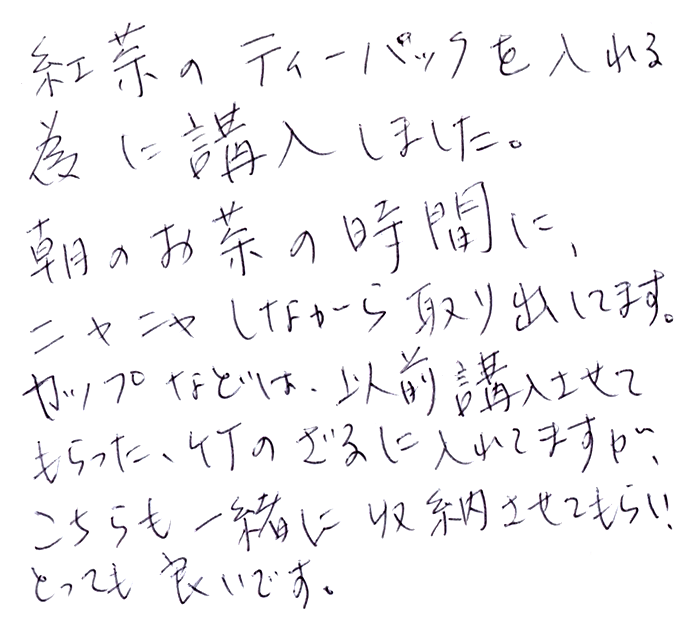 紅茶のティーパックを入れる
為に講入しました。
朝のお茶の時間に、
ニヤニヤしながら取り出してます。
カップなどは、以前講入させて
もらった、竹のざるに入れてますが、
こちらも一緒に収納させてもらい!
とっても良いです。